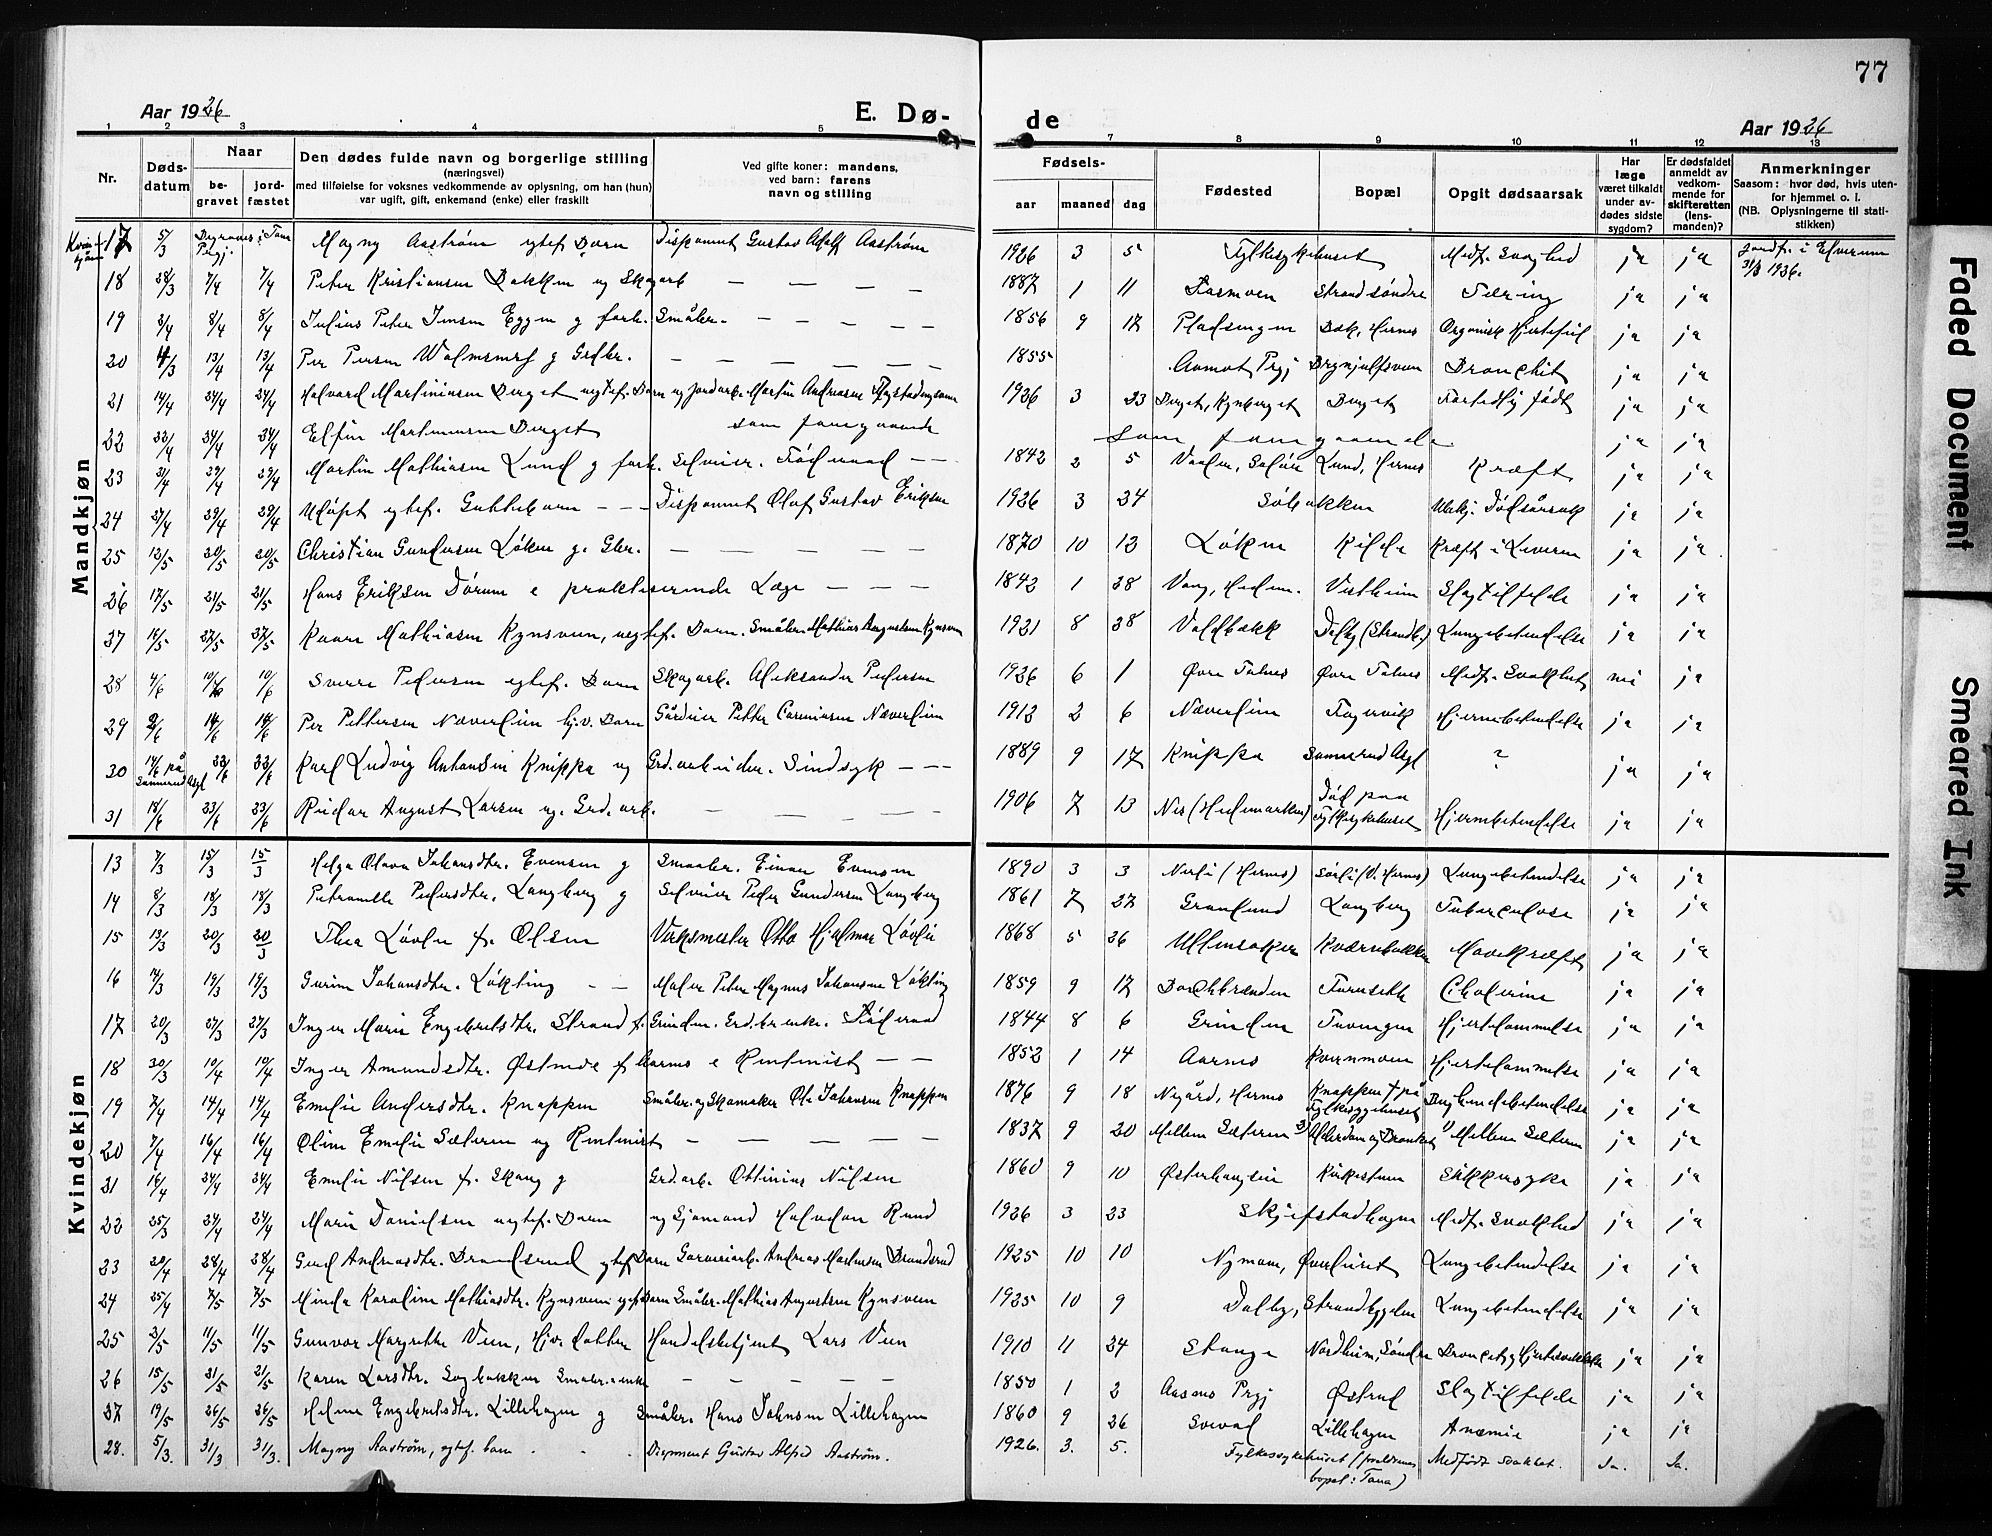 77
Aar 1926
E. Dø-
de
Aar 1926
1 2 3 4 5 7 8 9 10 11 12 13
Nr.
Døds-
datum
Naar
be-
gravet
jord-
fæstet
Den dødes fulde navn og borgerlige stilling
(næringsvei)
med tilføielse for voksnes vedkommende av oplysning, om han (hun)
var ugift, gift, enkemand (enke) eller fraskilt
Ved gifte koner: mandens,
ved barn: farens
navn og stilling
Fødsels-
aar
maaned
dag
Fødested
Bopæl
Opgit dødsaarsak
Har
læge
været tilkaldt
under av-
dødes sidste
sygdom?
Er dødsfaldet
anmeldt av
vedkom-
mende for
skifteretten
(lens-
manden)?
Anmerkninger
Saasom: hvor død, hvis uten-
for hjemmet o. l.
(NB. Oplysningerne til stati-
stikken)
Mandkjøn
17 5/3 Magny Aastrøm egtef. Barn Disponent Gustav Adolf Aastrøm 1926 3 5 Fylkesykehuset Medf. Svaghed ja ja Jordf. i Elverum
18 28/3 7/4 7/4 Peter Kristiansen Bakken ug Skogarb — — — 1887 1 11 Strandsøndre Tæring ja ja
19 3/4 8/4 8/4 Julius Peter Jensen Eggen g fork. Småbr. — — — 1856 9 17 Pladsengen Bæk, Hernes Organisk Hjertefeil ja ja
20 4/3 13/4 13/4 Per Persen g Grdbr. — — — 1855 Aamot Prgj Brynjulfsveen Bronchit ja ja
21 14/4 24/4 24/4 Halvard Martiniusen Berget uegtef. Barn ug Jordarb. Martin Andreasen 1926 3 23 Berget, Kynberget Berget Fortidlig født ja ja
22 22/4 24/4 24/4 Elfin Martinusen Berget som foregaaende som foregaaende ja ja
23 21/4 29/4 29/4 Martin Mathiasen Lund g fork. Selveier. Føderaad — — 1842 2 5 Vaaler, Solør Lund, Hernes Kræft ja ja
24 27/4 29/4 29/4 Udøpt egtef. Guttebarn — — Disponent Olaf Gustav Eriksen 1926 3 24 Sóbakken Ubekj. Dødsårsak ja ja
25 12/5 20/5 20/5 Christian Gundersen Løken g. Gbr. — — — 1870 10 12 Løken Kilde Kræft i Leveren ja ja
26 17/5 21/5 21/5 Hans Eriksen Dørum e praktiserende Læge — — — 1842 1 28 Vang, Hedem. Vestheim Slagtilfelde ja ja
27 27/5 27/5 Kaare Mathiasen Kynsveen, uegtef. Barn. Småbr. Mathias Augustsen Kynsveen 1921 8 28 Voldbækk Dalby (Strandb.) Lungebetendelse ja ja
28 4/6 10/6 10/6 Sverre Pedersen egtef. Barn Skogarb. Aleksander Pedersen 1926 6 1 Øvre Talnes Øvre Talnes Medf. Svakhet nei ja
29 9/6 14/6 14/6 Per Pettersen Næverlien hj.v. Barn Gårdeier Petter Næverlien 1912 2 6 Næverlien Fagervik Hjernebetendelse ja ja
30 14/6 på Sannerud Asyl 23/6 23/6 Karl Ludvig Antonsen Knippa ug Grd.arbeider. Sindsyk — — 1889 9 17 Knippa Sannerud Asyl ? ja ja
31 18/6 23/6 23/6 Reidar August Larsen ug. Grd.arb. — — — 1906 7 13 Nes (Hedemarken) Død paa Fylkesykehuset Hjernebetendelse ja ja
Kvindekjøn
13 7/3 15/3 15/3 Helga Olava Johansdtr. Evensen g Smaabr. Einar Evensen 1890 3 3 Nerli (Hernes) Sørli (V. Hernes) Lungebetendelse ja ja
14 8/3 18/3 18/3 Petronelle Pedersdtr. Langberg g Selveier Peder Gundersen Langberg 1861 7 27 Granlund Langberg Tuberculose ja ja
15 13/3 20/3 20/3 Thea Løvlie f. Olsen Verksmester Otto Hjalmar Løvlie 1868 5 26 Ullensaker Kværnbakken Mavekræft ja ja
16 14/3 19/3 19/3 Gurine Johansdtr. Løkting — — Maler Peter Magnus Johansen Løkting 1859 9 17 Furusett Cholerine ja ja
17 20/3 27/3 27/3 Inger Marie Engebretsdtr. Strand f. Grinden. Grd.br.enke. Føderaad 1844 8 6 Grinden Tuvengen Hjertelammelse ja ja
18 30/3 10/4 10/4 Inger Amundsdtr. Østmoe f Aarnes e Rentenist — — 1852 1 14 Aarnes Kvernmoen Hjertelammelse ja ja
19 7/4 14/4 14/4 Emelie Andersdtr. Knappen Småbr. og Skomaker Ole Johansen Knappen 1876 9 18 Nygård, Hernes Knappen † på Fylkessygehuset Bughindebetendelse ja ja
20 7/4 16/4 16/4 Oline Emelie Sæteren ug Rentenist — — — 1837 9 20 Mellem Sæteren Mellem Sæteren ja ja
21 16/4 24/4 24/4 Emelie Nilsen f. Skaug g Grd.arb. Ottinius Nilsen 1860 9 10 Østerhaugen Kirkestuen Sukkersyke ja ja
22 25/3 24/4 24/4 Marie Danielsen uegtef. Barn ug Sjømand Halvdan Rund 1926 3 23 Skjefstadhagen Medf. Svakhed ja ja
23 20/4 28/4 28/4 Gerd Andreasdtr. Brandsrud egtef Barn Garveriarb. Andreas Brandsrud 1925 10 10 Nymoen, Øverfuret Lungebetendelse ja ja
24 25/4 7/5 7/5 Minda Karoline Mathiasdtr. Kynsveen egtef Barn Småbr. Mathias Augustsen Kynsveen 1925 10 9 Dalby, Strandbygden Lungebetendelse ja ja
25 3/5 11/5 11/5 Gunvor Margrethe Veen, Hjv. Datter Handelsbetjent Lars Veen 1910 11 24 Stange Nordheim, Søndre Bronchit og Hjertesvakhet ja ja
26 15/5 21/5 21/5 Karen Larsdtr. Sagbakken Smaabr.enke — — — 1850 1 2 Aasnes Prgj Østrud Slagtilfelde ja ja
27 19/5 26/5 26/5 Helene Engebretsdtr. Lillehagen g Småbr. Hans Johnsen Lillehagen 1860 9 26 Lillehagen Anæmie ja ja
28. 5/3. 31/3 31/3. Magny Aastrøm, egtef. barn Disponent Gustav Alfred Aastrøm. 1926. 3. 5. Fylkessykehuset (foreldrenes bopel: Tana) Medfødt svakhet. Ja. Ja.
Faded Document
Smeared Ink